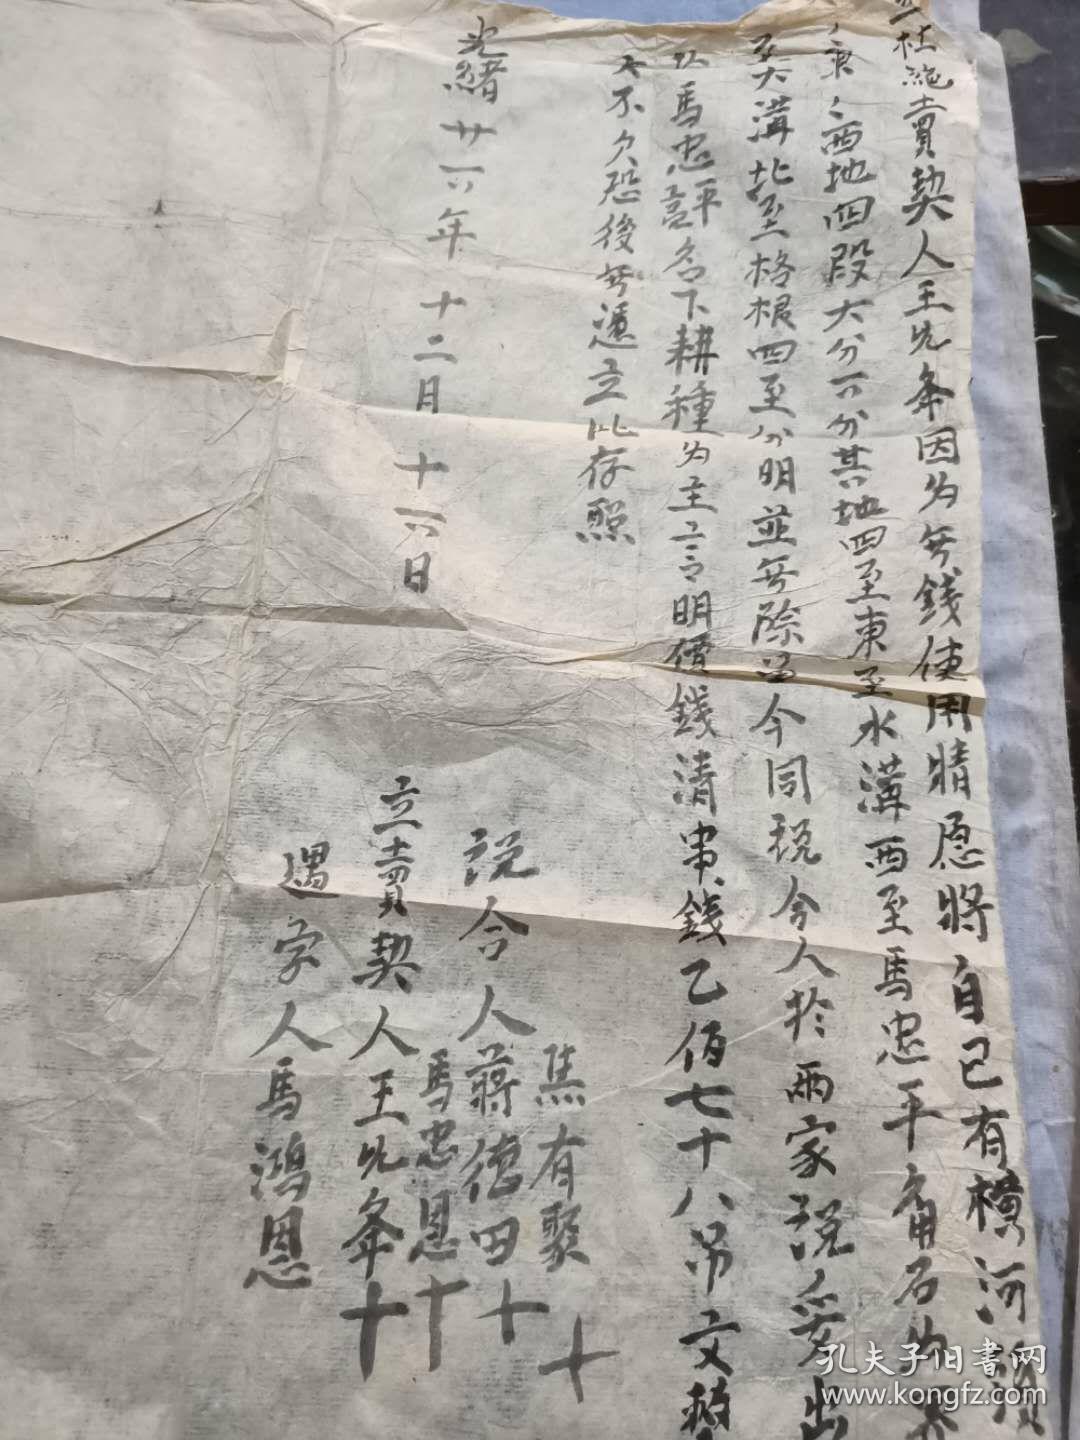 立杜絶賣契人王允年因为無錢使用情愿將自己有横河灘
東西地四段大分六分其地四至東至水溝西至馬忠平角石为界
至溝北至格根四至分明並無除留今同説合人扵兩家説妥出
馬忠平名下耕種为主言明價錢清串錢乙佰七十八吊文
不欠恐後無憑立此存照
光緒廿六年十二月十六日
焦有聚十
説合人蔣德田十
馬忠恩十
立賣契人王允年十
遇字人馬鴻恩
孔夫子旧书网
www.kongfz.com